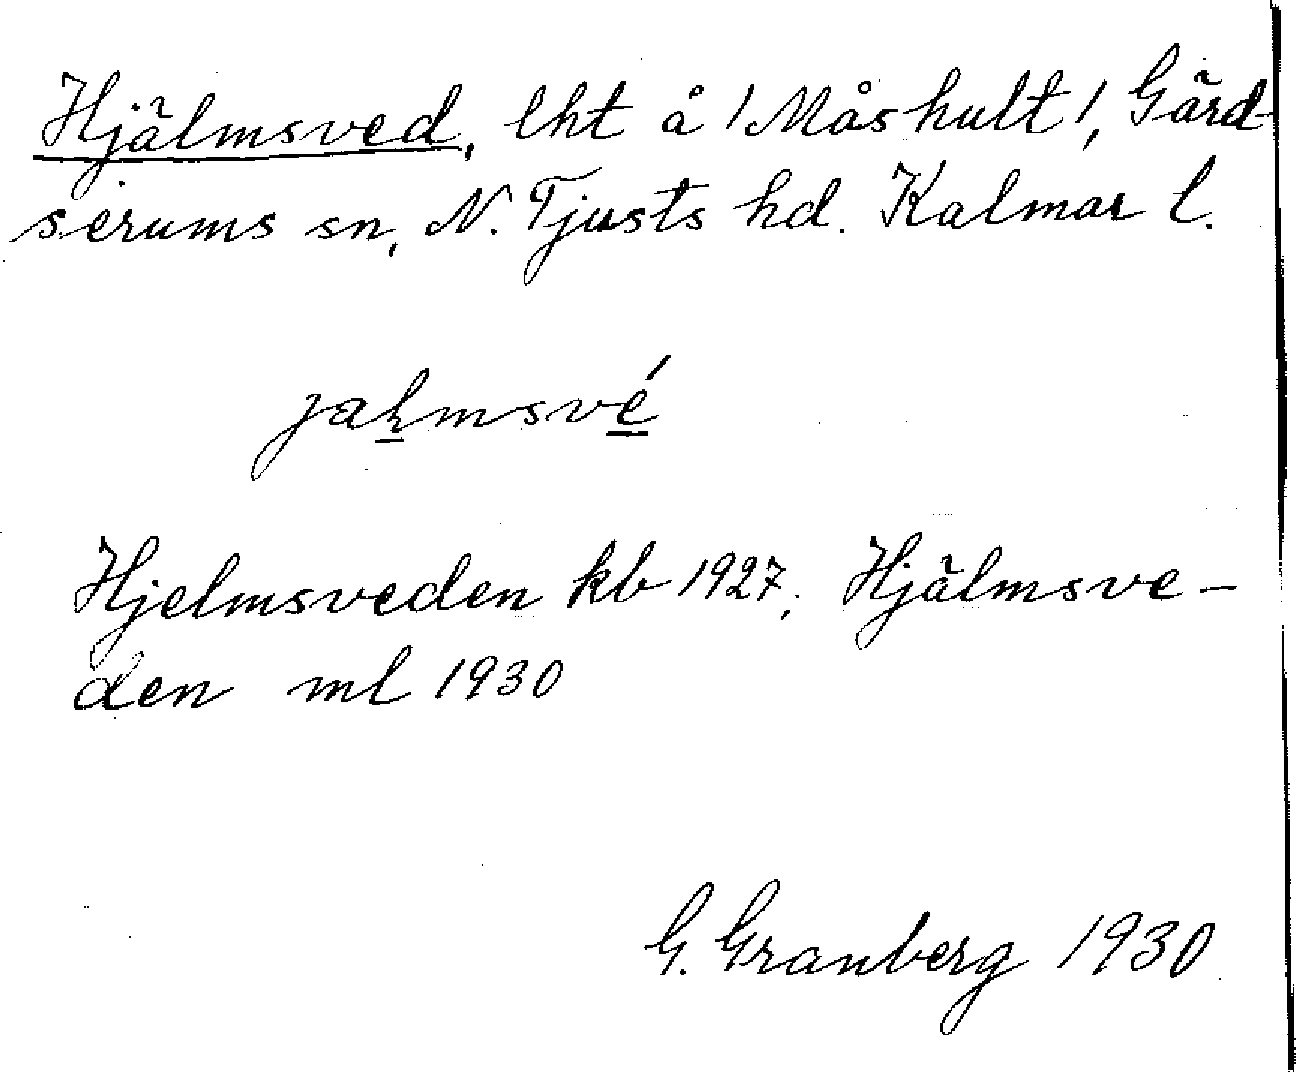 Hjälmsved, lht å /Måshult/, Gärd-
serums sn, N. Tjusts hd. Kalmar l.
jaḻmsvé̱
Hjelmsveden kb 1927, Hjälmsve-
den ml 1930
G. Granberg 1930